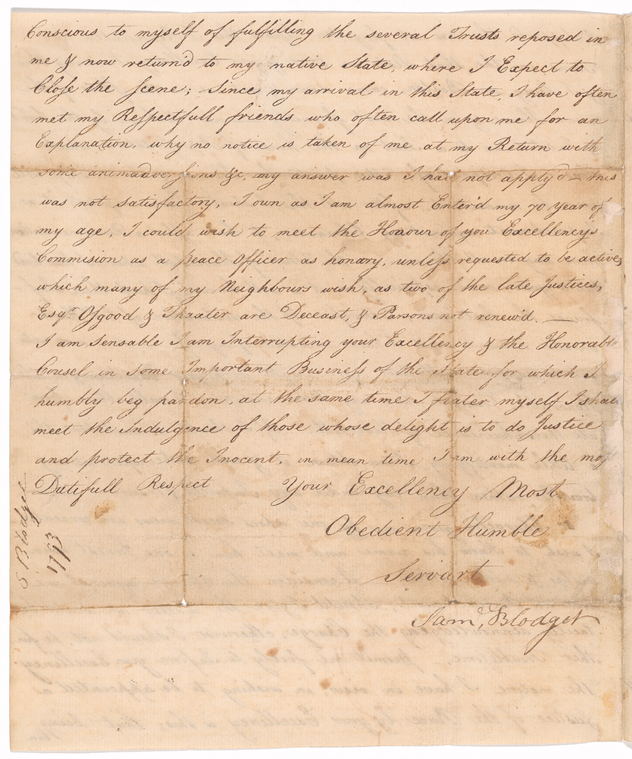 Conscious to myself of fulfilling the several Trusts reposed in
me & now return'd to my native State, where I Expect to
Close the scene; Since my arrival in this State, I have often
met my Respectfull friends who often call upon me for an
Explanation, why no notice is taken of me at my Return with
some animadversions &c, my answer was I had not apply'd – this
was not satisfactory, I own as I am almost Enter'd my 70 Year of
my age, I could wish to meet the Honour of you Excellencys
Commision as a peace Officer as honary, unless requested to be active,
which many of my Neighbours wish, as two of the late Justices,
Esqrs Osgood & Thaxter are Deceast, & Parsons not renew'd. —
I am sensable I am Interrupting your Excellency & the Honorable
Cousel in some Important Business of the State for which I
humbly beg pardon, at the same time I flater myself I shall
meet the Indulgence of those whose delight is to do Justice
and protect the Inocent, in mean time I am with the most
Dutifull Respect Your Excellency Most
Obedient Humble
Servant
Saml. Blodget
S Blodget
1793